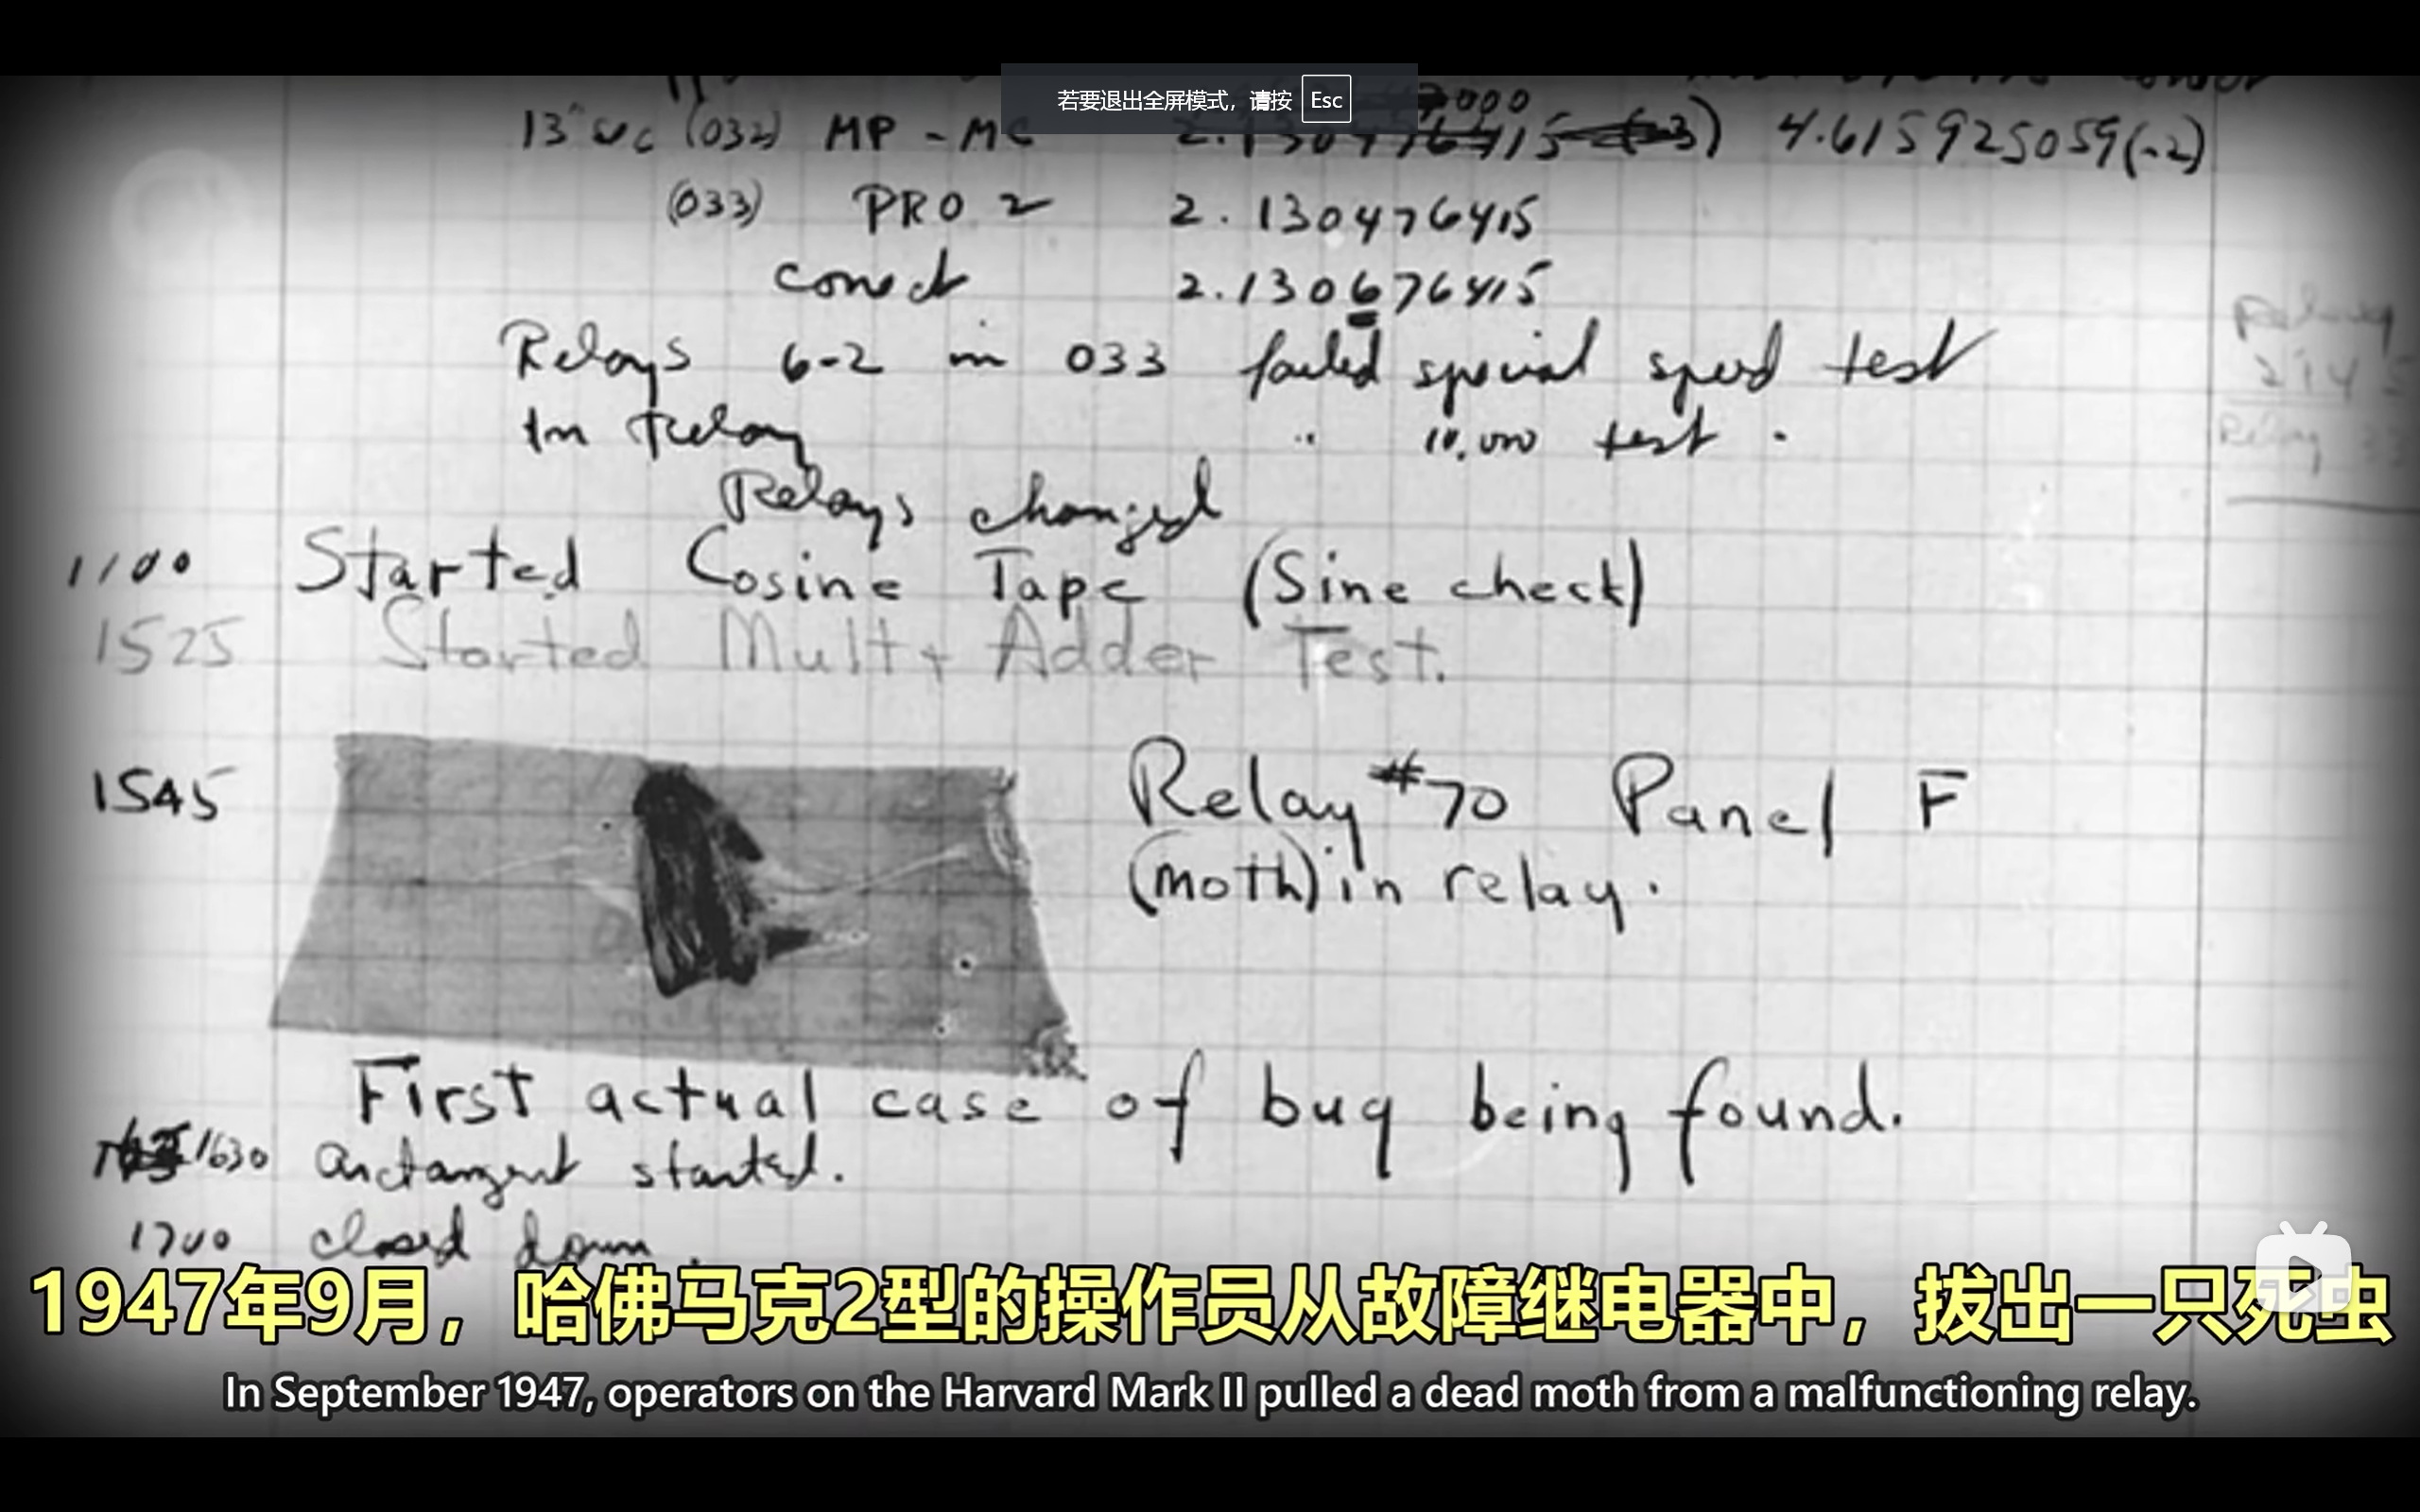 若要退出全屏模式，请按 Esc
000
13 uc (032) MP - MC 2.130476415 (-3) 4.615925059(-2)
(033) PRO 2 2.130476415
conect 2.130676415
Relays 6-2 in 033 failed special speed test
In Relay " 10.000 test .
Relays changed
Relay
214
Relay 33
1100 Started Cosine Tape (Sine check)
1525 Started Mult + Adder Test.
1545 Relay #70 Panel F
(moth) in relay.
First actual case of bug being found.
1630 arctangent started.
1700 closed down.
1947年9月，哈佛马克2型的操作员从故障继电器中，拔出一只死虫
In September 1947, operators on the Harvard Mark II pulled a dead moth from a malfunctioning relay.